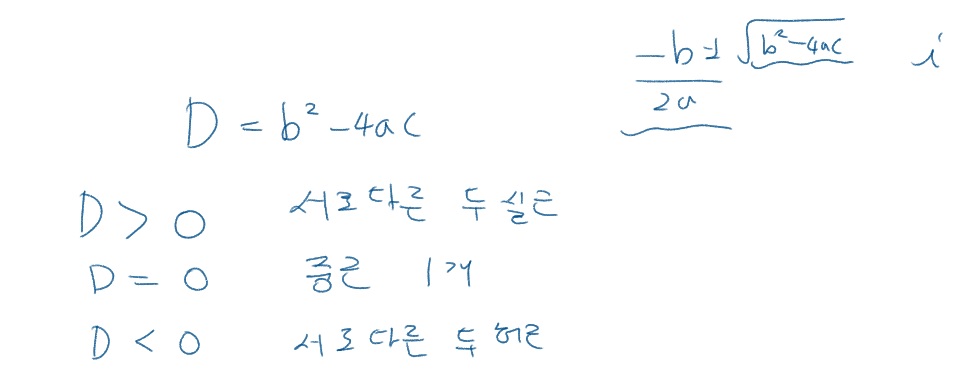 -b± √b²-4ac i
2a
D = b² -4ac
D > 0 서로다른 두 실근
D = 0 중근 1개
D < 0 서로다른 두 허근